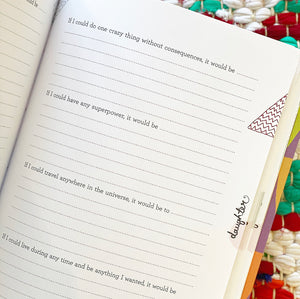 If I could do one crazy thing without consequences, it would be
If I could have any superpower, it would be
If I could travel anywhere in the universe, it would be to
If I could live during any time and be anything I wanted, it would be
daughter